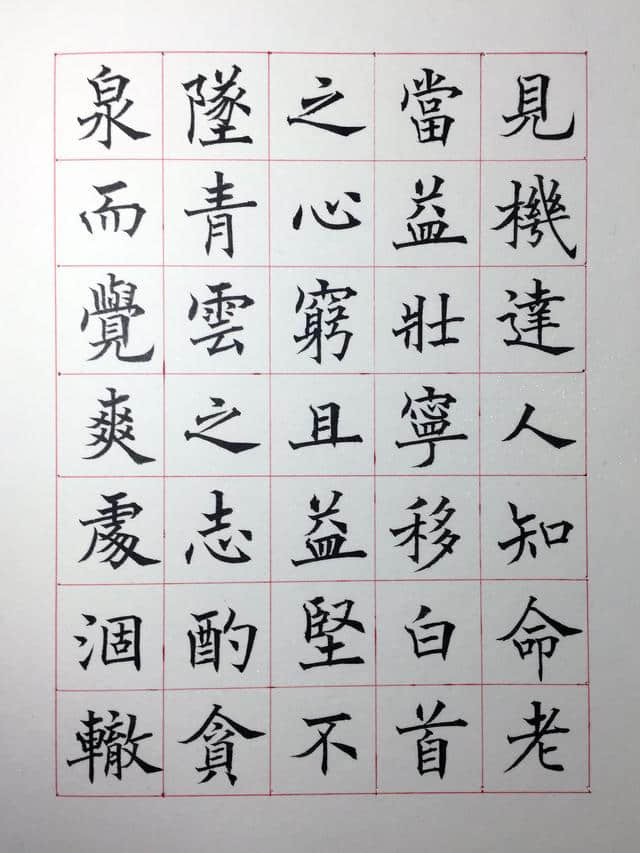 見機達人知命老
當益壯寧移白首
之心窮且益堅不
墜青雲之志酌貪
泉而覺爽處涸轍